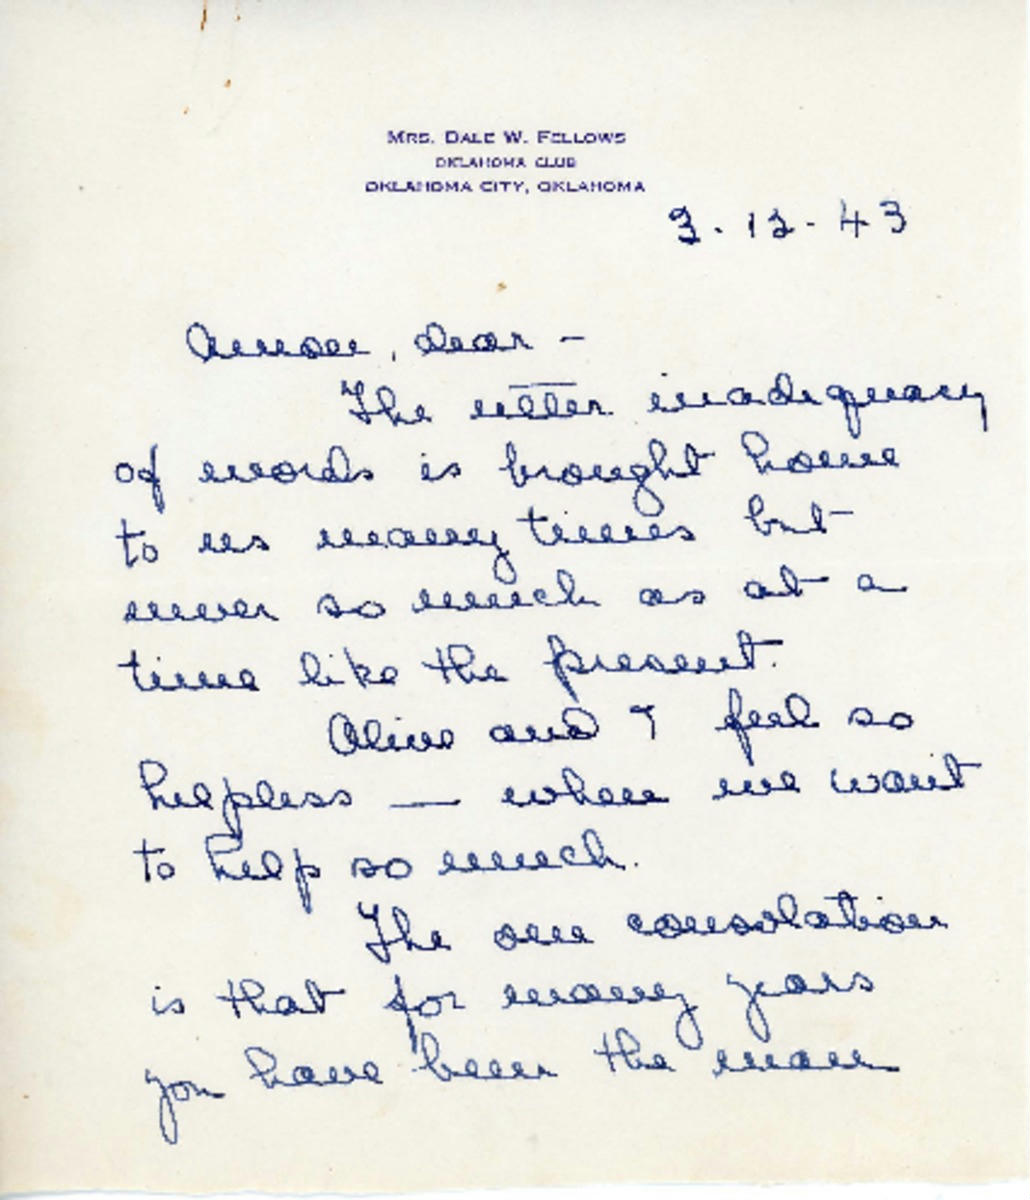 MRS. DALE W. FELLOWS
OKLAHOMA CLUB
OKLAHOMA CITY, OKLAHOMA
3.12-43
Amon, dear -
The utter inadequacy
of words is brought home
to us many times but
never so much as at a
time like the present.
Aline and I feel so
helpless — when we want
to help so much.
The one consolation
is that for many years
you have been the man